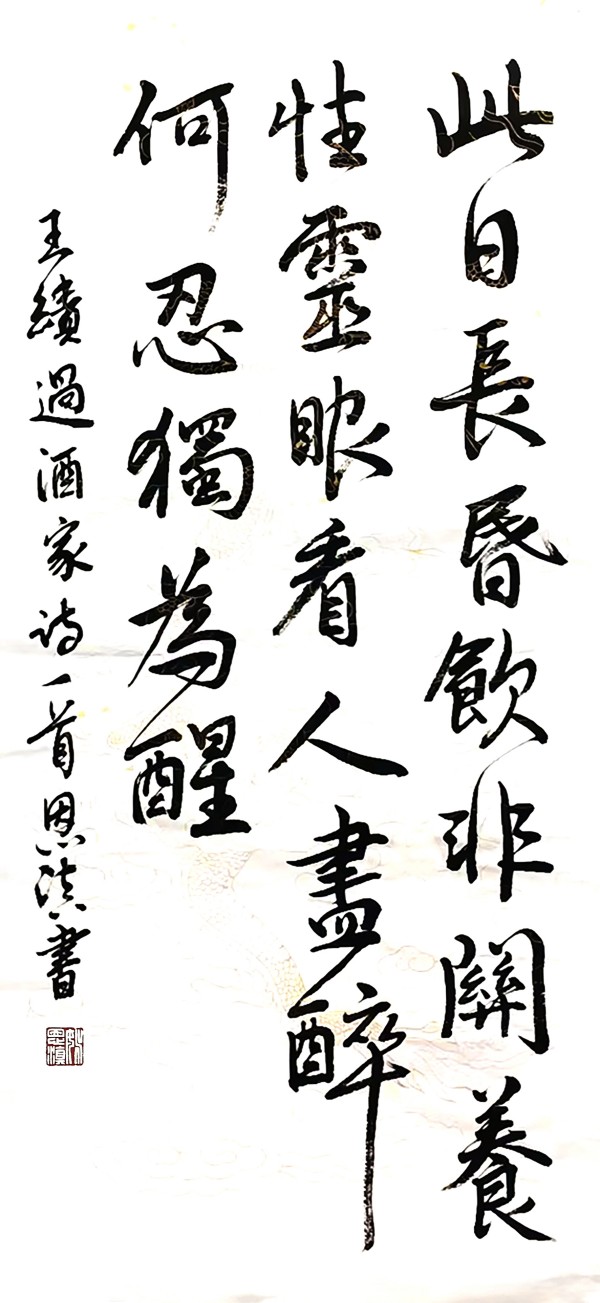 此日長昏飲非關養
性靈眼看人盡醉
何忍獨為醒
王績過酒家诗一首恩滇書